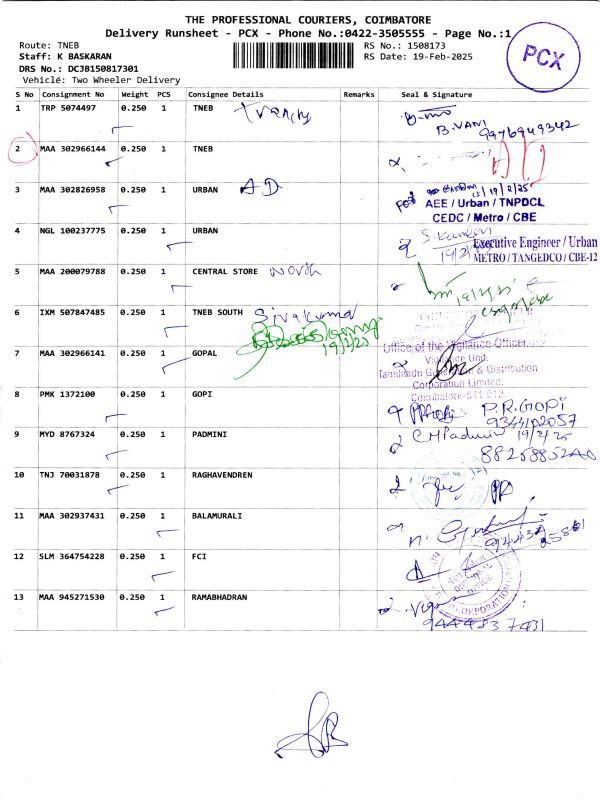 THE PROFESSIONAL COURIERS, COIMBATORE
Delivery Runsheet - PCX - Phone No.:0422-3505555 - Page No.:1
PCX
Route: TNEB
RS No.: 1508173
Staff: K BASKARAN
RS Date: 19-Feb-2025
DRS No.: DCJB150817301
Vehicle: Two Wheeler Delivery
S No Consignment No Weight PCS Consignee Details Remarks Seal & Signature
1 TRP 5074497 0.250 1 TNEB
B.VANI
9976949342
2 MAA 302966144 0.250 1 TNEB
3 MAA 302826958 0.250 1 URBAN AD
19/2/25
AEE / Urban / TNPDCL
CEDC / Metro / CBE
4 NGL 100237775 0.250 1 URBAN
Executive Engineer / Urban
METRO / TANGEDCO / CBE-12
5 MAA 200079788 0.250 1 CENTRAL STORE North
6 IXM 507847485 0.250 1 TNEB SOUTH Sivakumar
19/2/25
Office of the Vigilance Officer
Vigilance Unit,
7 MAA 302966141 0.250 1 GOPAL
& Distribution
Corporation Limited,
Coimbatore-641 012
8 PMK 1372100 0.250 1 GOPI
P.R.GOPI
9344102057
9 MYD 8767324 0.250 1 PADMINI
C M Padmini 19/2/25
8825885240
10 TNJ 70031878 0.250 1 RAGHAVENDREN
11 MAA 302937431 0.250 1 BALAMURALI
12 SLM 364754228 0.250 1 FCI
13 MAA 945271530 0.250 1 RAMABHADRAN
9444837431